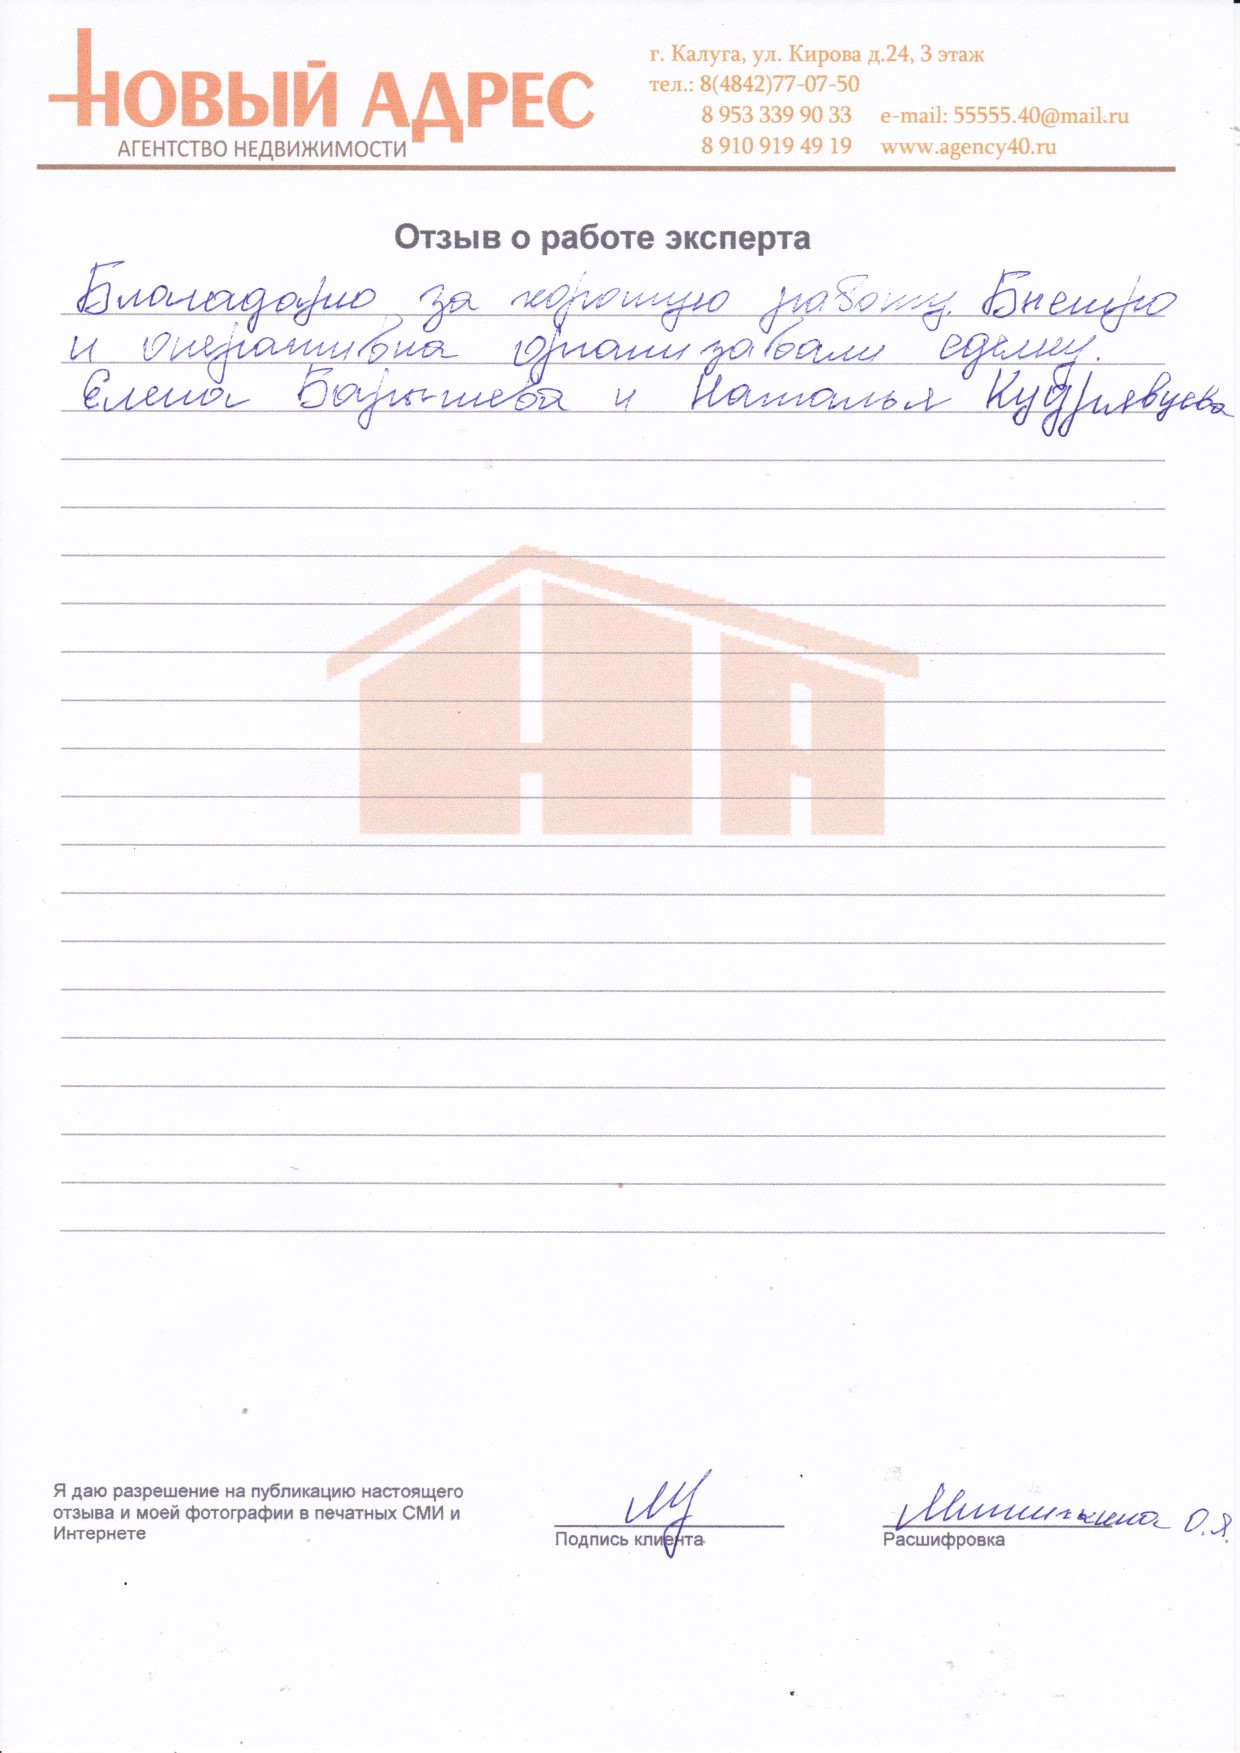 НОВЫЙ АДРЕС
АГЕНТСТВО НЕДВИЖИМОСТИ
г. Калуга, ул. Кирова д.24, 3 этаж
тел.: 8(4842)77-07-50
8 953 339 90 33 e-mail: 55555.40@mail.ru
8 910 919 49 19 www.agency40.ru
Отзыв о работе эксперта
Благадарю за хорошую работу. Быстро
и оперативна организавали сделку.
Елена Барышева и Наталья Кудрявцева
НА
Я даю разрешение на публикацию настоящего
отзыва и моей фотографии в печатных СМИ и
Интернете
Подпись клиента
О.Я.
Расшифровка